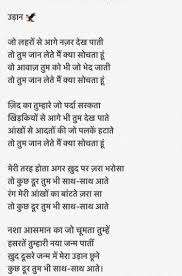 उड़ान 🦅
जो लहरों से आगे नज़र देख पाती
तो तुम जान लेते मैं क्या सोचता हूं
वो आवाज़ तुम को भी जो भेद जाती
तो तुम जान लेते मैं क्या सोचता हूं
ज़िद का तुम्हारे जो पर्दा सरकता
खिड़कियों से आगे भी तुम देख पाते
आंखों से आदतों की जो पलकें हटाते
तो तुम जान लेते मैं क्या सोचता हूं
मेरी तरह होता अगर खुद पर ज़रा भरोसा
तो कुछ दूर तुम भी साथ-साथ आते
रंग मेरी आंखों का बांटते ज़रा सा
तो कुछ दूर तुम भी साथ-साथ आते
नशा आसमान का जो चूमता तुम्हें
हसरतें तुम्हारी नया जन्म पातीं
खुद दूसरे जन्म में मेरी उड़ान छूने
कुछ दूर तुम भी साथ-साथ आते।